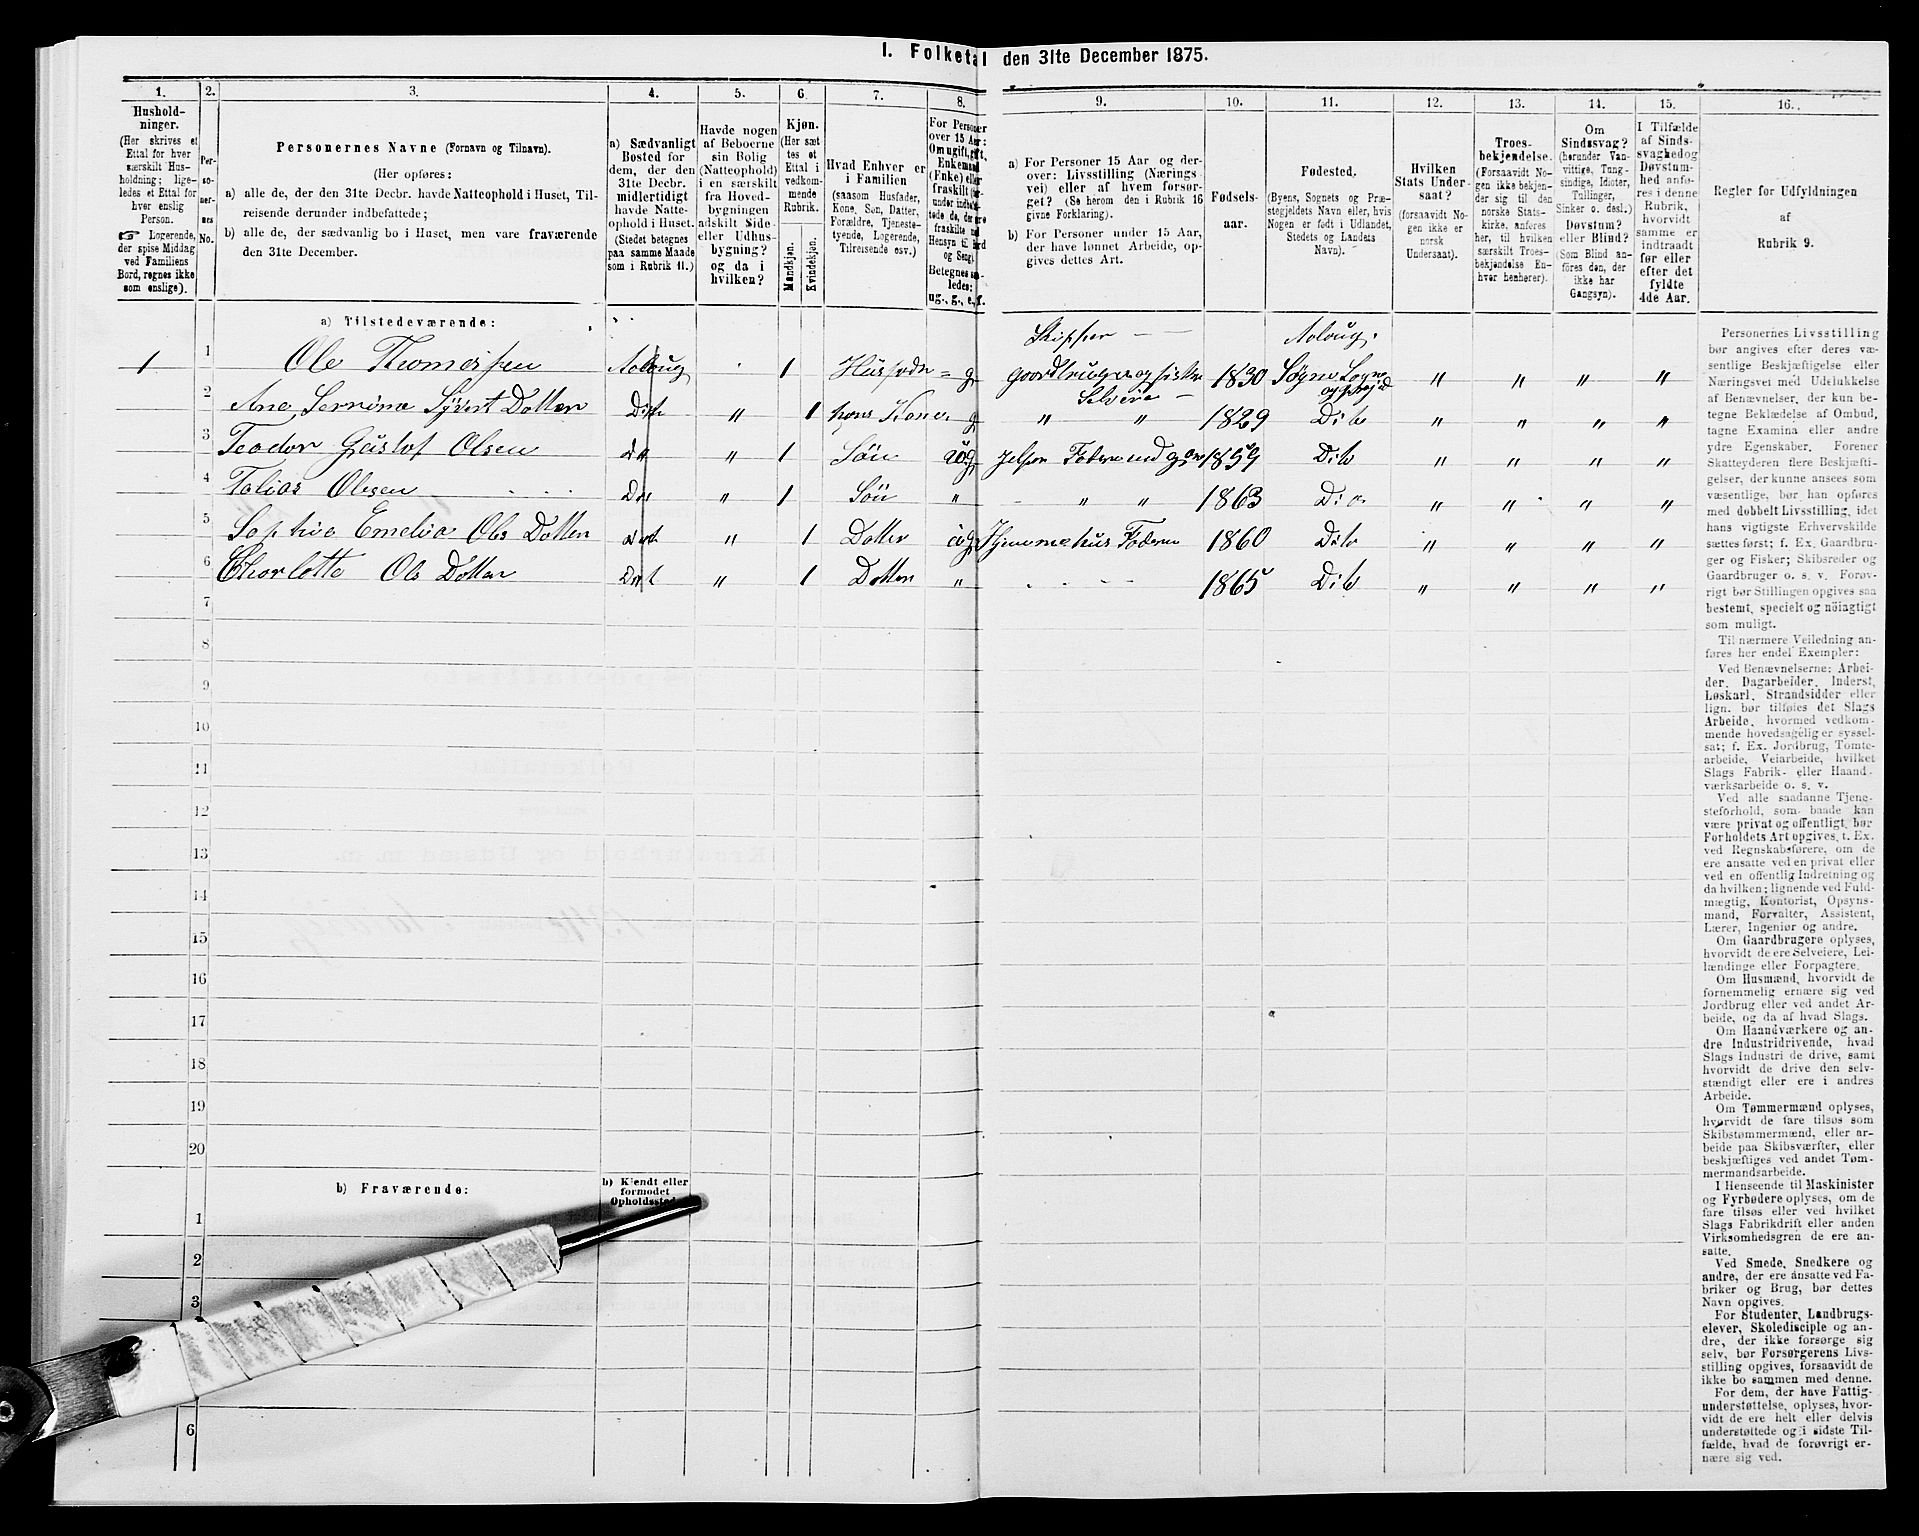 I. Folketal den 31te December 1875.
1. 2. 3. 4. 5. 6. 7. 8. 9. 10. 11. 12. 13. 14. 15. 16.
Hushold-
ninger.
(Her skrives et
Ettal for hver
særskilt Hus-
holdning; lige-
ledes et Ettal for
hver enslig
Person.
☞ Logerende,
der spise Middag
ved Familiens
Bord, regnes ikke
som enslige).
Per-
so-
ner-
nes
No.
Personernes Navne (Fornavn og Tilnavn).
(Her opføres:
a) alle de, der den 31te Decbr. havde Natteophold i Huset, Til-
reisende derunder indbefattede;
b) alle de, der sædvanlig bo i Huset, men vare fraværende
den 31te December.
a) Sædvanligt
Bosted for
dem, der den
31te Decbr.
midlertidigt
havde Natte-
ophold i Huset.
(Stedet betegnes
paa samme Maade
som i Rubrik 11.)
Havde nogen
af Beboerne
sin Bolig
(Natteophold)
i en særskilt
fra Hoved-
bygningen
adskilt Side-
eller Udhus-
bygning?
og da i
hvilken?
Kjøn.
(Her sæt-
tes et
Ettal i
vedkom-
mende
Rubrik.
Mandkjøn.
Kvindekjøn.
Hvad Enhver er
i Familien
(saasom Husfader,
Kone, Søn, Datter,
Forældre, Tjeneste-
tyende, Logerende,
Tilreisende osv.)
For Personer
over 15 Aar:
Om ugift, gift,
Enkemand
(Enke) eller
fraskilt
Betegnes
ledes:
ug., g., e., f.
a) For Personer 15 Aar og der-
over: Livsstilling (Nærings-
vei) eller af hvem forsør-
get? (Se herom den i Rubrik 16
givne Forklaring).
b) For Personer under 15 Aar,
der have lønnet Arbeide, op-
gives dettes Art.
Fødsels-
aar.
Fødested.
(Byens, Sognets og Præ-
stegjeldets Navn eller, hvis
Nogen er født i Udlandet,
Stedets og Landets
Navn).
Hvilken
Stats Under-
saat?
(forsaavidt No-
gen ikke er
norsk
Undersaat).
Troes-
bekjendelse.
(Forsaavidt No-
gen ikke bekjen-
der sig til den
norske Stats-
kirke, anføres
her, til hvilken
særskilt Troes-
bekjendelse En-
hver henhører).
Om
Sindssvag?
(herunder Van-
vittige, Idioter,
Tullinger,
Sinker o. desl.)
Døvstum?
eller Blind?
(Som Blind an-
føres den, der
ikke har
Gangsyn).
I Tilfælde
af Sinds-
svaghed og
Døvstum-
hed anfø-
res i denne
Rubrik,
hvorvidt
samme er
indtraadt
før eller
efter det
fyldte
4de Aar.
Regler for Udfyldningen
af
Rubrik 9.
a) Tilstedeværende:
Skipper — — Aaloug.
1 1 Ole Thomesen Aaloug 1 Husfader g gaardbruger og fisker 1830 Søgne Sogne " " " "
Selveier —
2 Ane Serrine Syvert Datter Dito " 1 hans Kone g " " 1829 Dito " " " "
3 Teodor Gustof Olsen " 1 Søn ug 1859 Dito " " " "
4 Tobias Olesen " 1 Søn " " " 1863 " " " "
5 Sophia Emelia Ols Datter " 1 Datter ug Hjemme hus Foderen 1860 Dito " " " "
6 Charlotte Ols Datter " 1 Datter " 1865 Dito " " " "
7
8
9
10
11
12
13
14
15
16
17
18
19
20
b) Fraværende:
b) Kjendt eller
formodet
Opholdssted.
1
2
3
6
Personernes Livsstilling
bør angives efter deres væ-
sentlige Beskjæftigelse eller
Næringsvei med Udelukkelse
af Benævnelser, der kun be-
tegne Beklædelse af Ombud,
tagne Examina eller andre
ydre Egenskaber. Forener
Skatteyderen flere Beskjæfti-
gelser, der kunne ansees som
væsentlige, bør han opføres
med dobbelt Livsstilling, idet
hans vigtigste Erhvervskilde
sættes først; f. Ex. Gaardbru-
ger og Fisker; Skibsreder og
Gaardbruger o. s. v. Forøv-
rigt bør Stillingen opgives saa
bestemt, specielt og nöiagtigt
som muligt.
Til nærmere Veiledning an-
føres her endel Exempler:
Ved Benævnelserne: Arbei-
der, Dagarbeider, Inderst,
Løskarl, Strandsidder eller
lign. bør tilføies det Slags
Arbeide, hvormed vedkom-
mende hovedsagelig er syssel-
sat; f. Ex. Jordbrug, Tomte-
arbeide, Veiarbeide, hvilket
Slags Fabrik- eller Haand-
værksarbeide o. s. v.
Ved alle saadanne Tjene-
steforhold, som baade kan
være privat og offentligt, bør
Forholdets Art opgives, t. Ex.
ved Regnskabsførere, om de
ere ansatte ved en privat eller
ved en offentlig Indretning og
da hvilken; lignende ved Fuld-
mægtig, Kontorist, Opsyns-
mand, Forvalter, Assistent,
Lærer, Ingeniør og andre.
Om Gaardbrugere oplyses,
hvorvidt de ere Selveiere, Lei-
lændinge eller Forpagtere.
Om Husmænd, hvorvidt de
fornemmelig ernære sig ved
Jordbrug eller ved andet Ar-
beide, og da af hvad Slags.
Om Haandværkere og an-
dre Industridrivende, hvad
Slags Industri de drive, samt
hvorvidt de drive den selv-
stændigt eller ere i andres
Arbeide.
Om Tømmermænd oplyses,
hvorvidt de fare tilsøs som
Skibstømmermænd, eller ar-
beide paa Skibsværfter, eller
beskjæftiges ved andet Tøm-
mermandsarbeide.
I Henseende til Maskinister
og Fyrbødere oplyses, om de
fare tilsøs eller ved hvilket
Slags Fabrikdrift eller anden
Virksomhedsgren de ere an-
satte.
Ved Smede, Snedkere og
andre, der ere ansatte ved Fa-
briker og Brug, bør dettes
Navn opgives.
For Studenter, Landbrugs-
elever, Skoledisciple og an-
dre, der ikke forsørge sig
selv, bør Forsørgerens Livs-
stilling opgives, forsaavidt de
ikke bo sammen med denne.
For dem, der have Fattig-
understøttelse, oplyses, hvor-
vidt de ere helt eller delvis
understøttede og i sidste Til-
fælde, hvad de forøvrigt er-
nære sig ved.